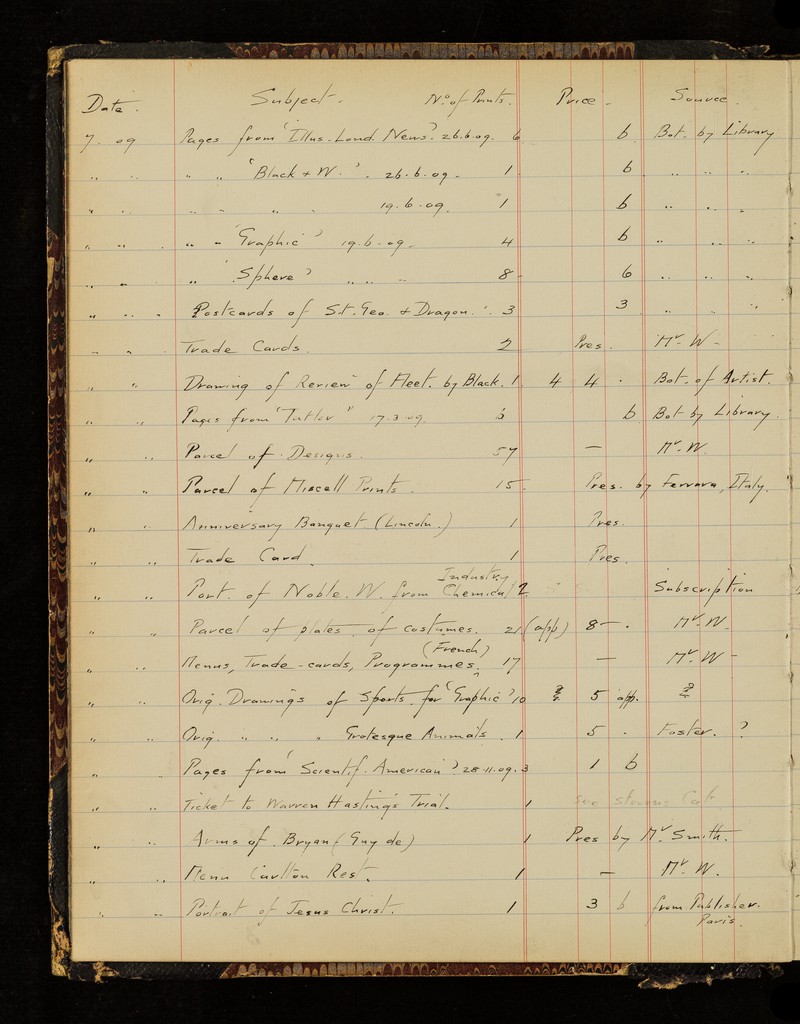 Date. Subject. No. of Prints. Price. Source.
7. 09 Pages from 'Illus. Lond. News' 26.6.09. 6 6 Bot. by Library
" " " " 'Black & W.' . 26.6.09. 1 6 " " "
" " " " 19.6.09. 1 6 " " "
" " " " " 'Graphic' 19.6.09. 4 6 " " "
" " " 'Sphere' " " " 8 6 " " "
" " " Postcards of St. Geo. & Dragon. 3 3 " " "
" " Trade Cards. 2 Pres. Mr. W.
" " Drawing of Review of Fleet. by Black. 1. 4 4 . Bot. of Artist.
" " Pages from "Tatler" 17.3.09. 6 Bot by Library.
" " Parcel of Designs. 57 — Mr. W.
" " Parcel of Miscell Prints. 15. Pres. by Ferrara, Italy.
" " Anniversary Banquet (Lincoln.) 1 Pres.
" " Trade Card. 1 Pres.
Industry
" " Port. of Noble. W. from Chemical 2 Subscription
" " Parcel of plates of costumes. 21 (app) 8 — . Mr. W.
(French)
" " Menus, Trade-cards, Programmes. 17 — Mr. W —
" " Orig. Drawings of Sports. for 'Graphic' 10 ? 5 app. ?
" " Orig. " " " Grotesque Animals. 1 5 . Foster. ?
" Pages from 'Scientif. American' 28.11.09. 3 1 6
" " Ticket to Warren Hasting's Trial. 1 see Stevens Cat.
" " Arms of Bryan (Guy de) 1 Pres by Mr. Smith.
" " Menu Carlton Rest. 1 — Mr. W.
" " Portrait of Jesus Christ. 1 3 6 from Publisher.
Paris.